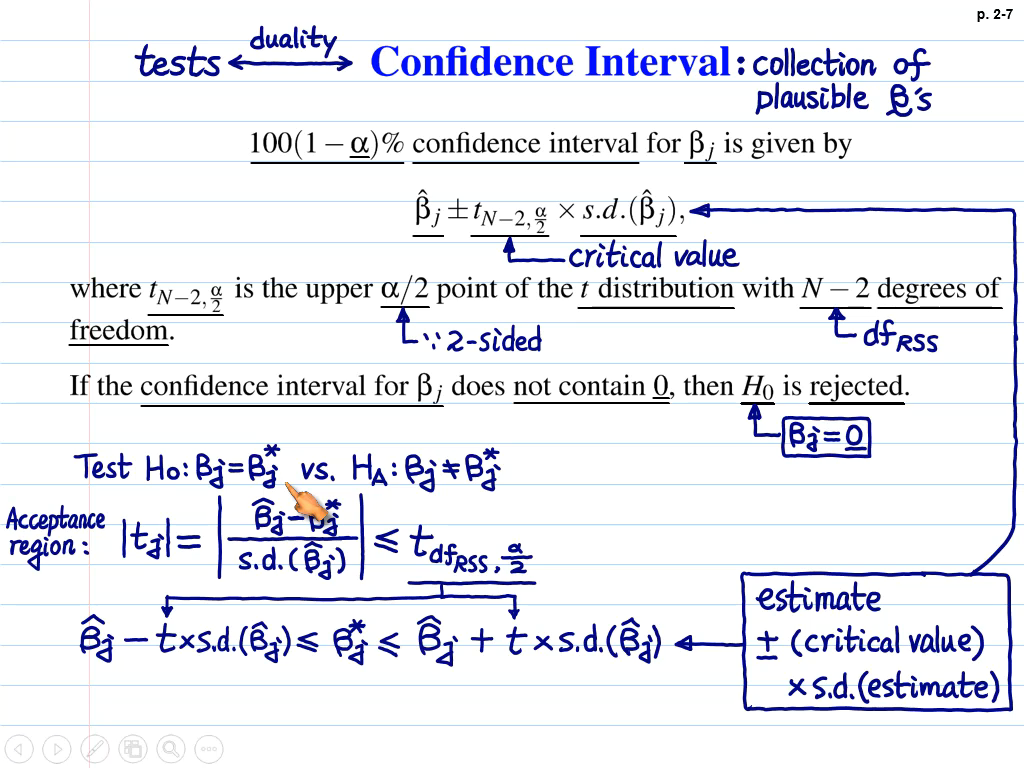 p. 2-7
tests ⟷ duality Confidence Interval : collection of
plausible β's
100(1 − α)% confidence interval for βj is given by
β̂j ± tN−2,α/2 × s.d.(β̂j),
critical value
where tN−2,α/2 is the upper α/2 point of the t distribution with N − 2 degrees of
freedom.
∵ 2-sided
dfRSS
If the confidence interval for βj does not contain 0, then H0 is rejected.
βj = 0
Test H0: βj = βj* vs. HA: βj ≠ βj*
Acceptance
region: |tj| = | (β̂j − βj*) / s.d.(β̂j) | ≤ tdfRSS, α/2
β̂j − t × s.d.(β̂j) ≤ βj* ≤ β̂j + t × s.d.(β̂j)
estimate
± (critical value)
× s.d.(estimate)